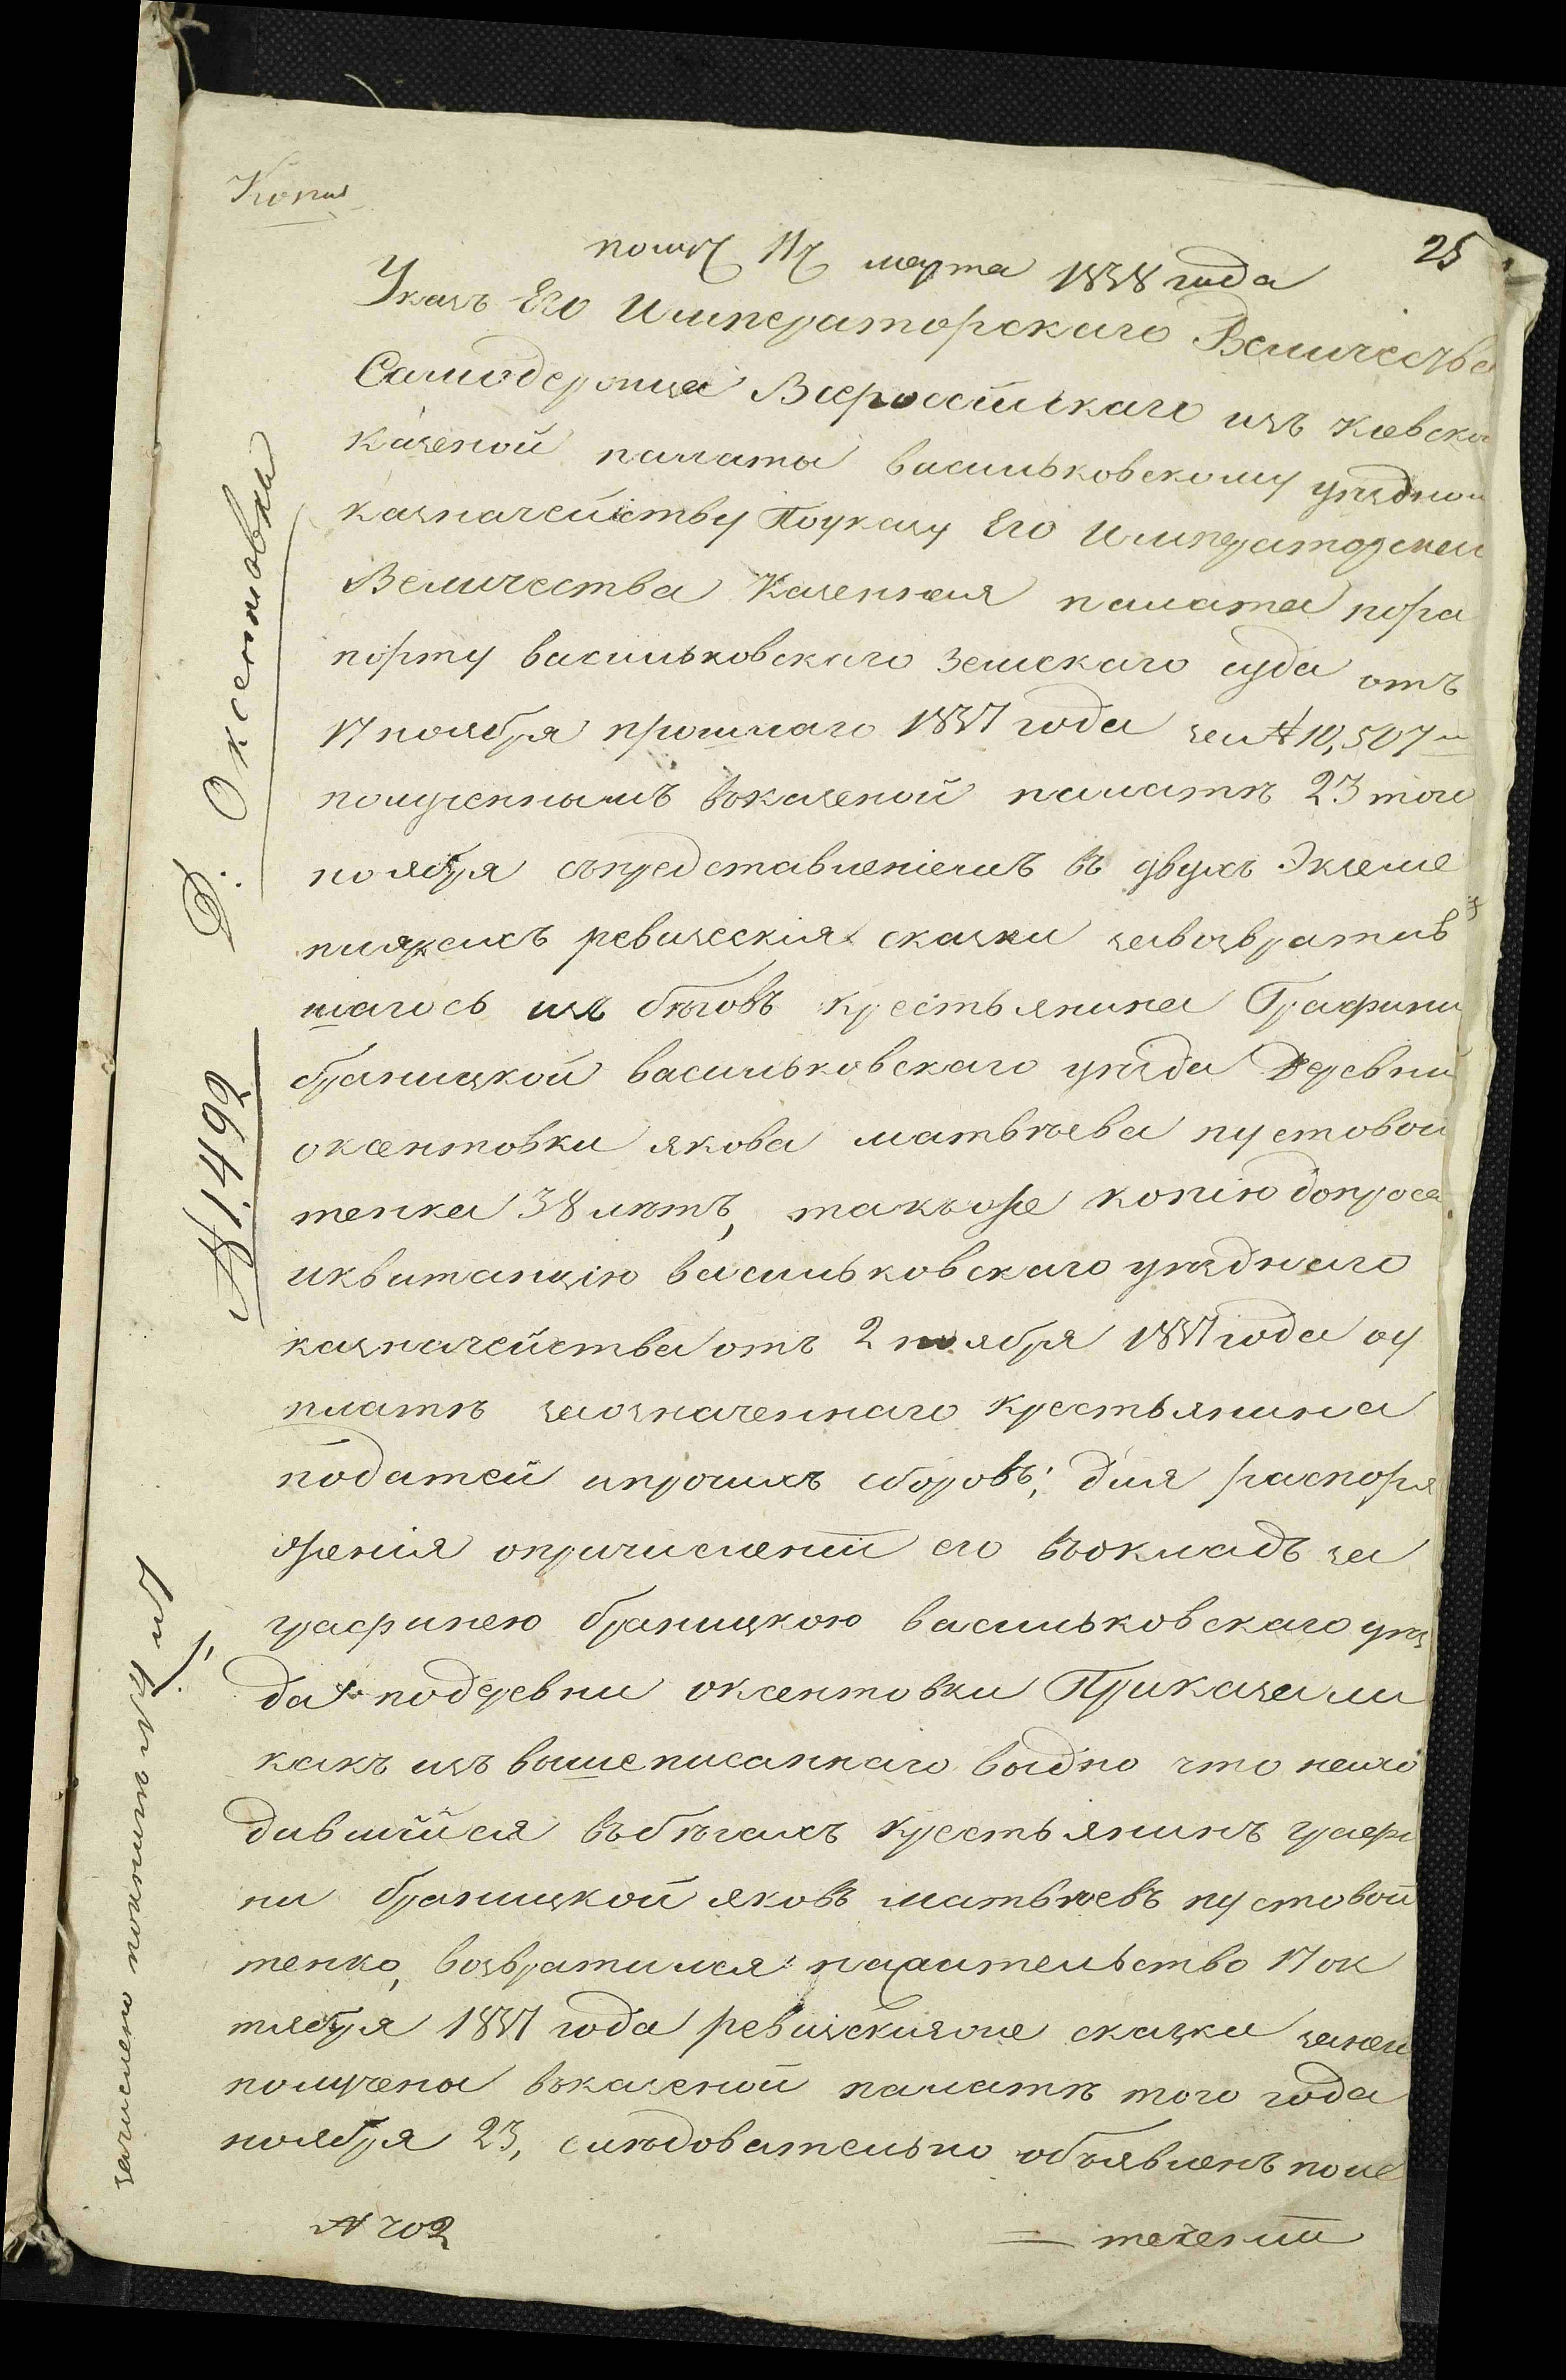 Копия
25
получ 11 марта 1838 года
Указъ Его Императорскаго Величества
Самодержца Всероссійскаго изъ Киевско
казеной палаты васильковскому уездном
казначейству Поуказу Его Императорскаг
Величества Казенная палата пора
порту васильковскаго земскаго суда отъ
17 ноября прошлаго 1837 года за № 10,507 м
полученнымъ вказеной палатѣ 23 того
ноября съпредставленіемъ въ двухъ Экземе
плярахъ ревизския сказки завозвратив
шагось изъ бѣговъ крестьянина Графини
браницкой васильковскаго уезда Деревни
оксентовки якова матвѣева пустовой
тенка 38 лѣтъ, такъже копію допроса
иквитанцію васильковскаго уезднаго
казначейства отъ 2 ноября 1837 года оу
платѣ заозначеннаго крестьянина
податей ипрочихъ сборовъ; для распоря
женія опричисленіи его вокладъ за
графинею браницкою васильковскаго уез
да подеревни оксентовки Приказали
какъ изъ вышеписаннаго видно что нахо
дившийся вбѣгахъ крестьянинъ графи
ни браницкой яковъ матвѣевъ пустовой
тенко, возвратился нажительство 17 ок
тября 1837 года ревизскияже сказки занег
получены вказеной палатѣ того года
ноября 23, следовательно объявленъ поис
№ 702
= течении
Д. Оксентовки
№ 1492
зачислено поокладн